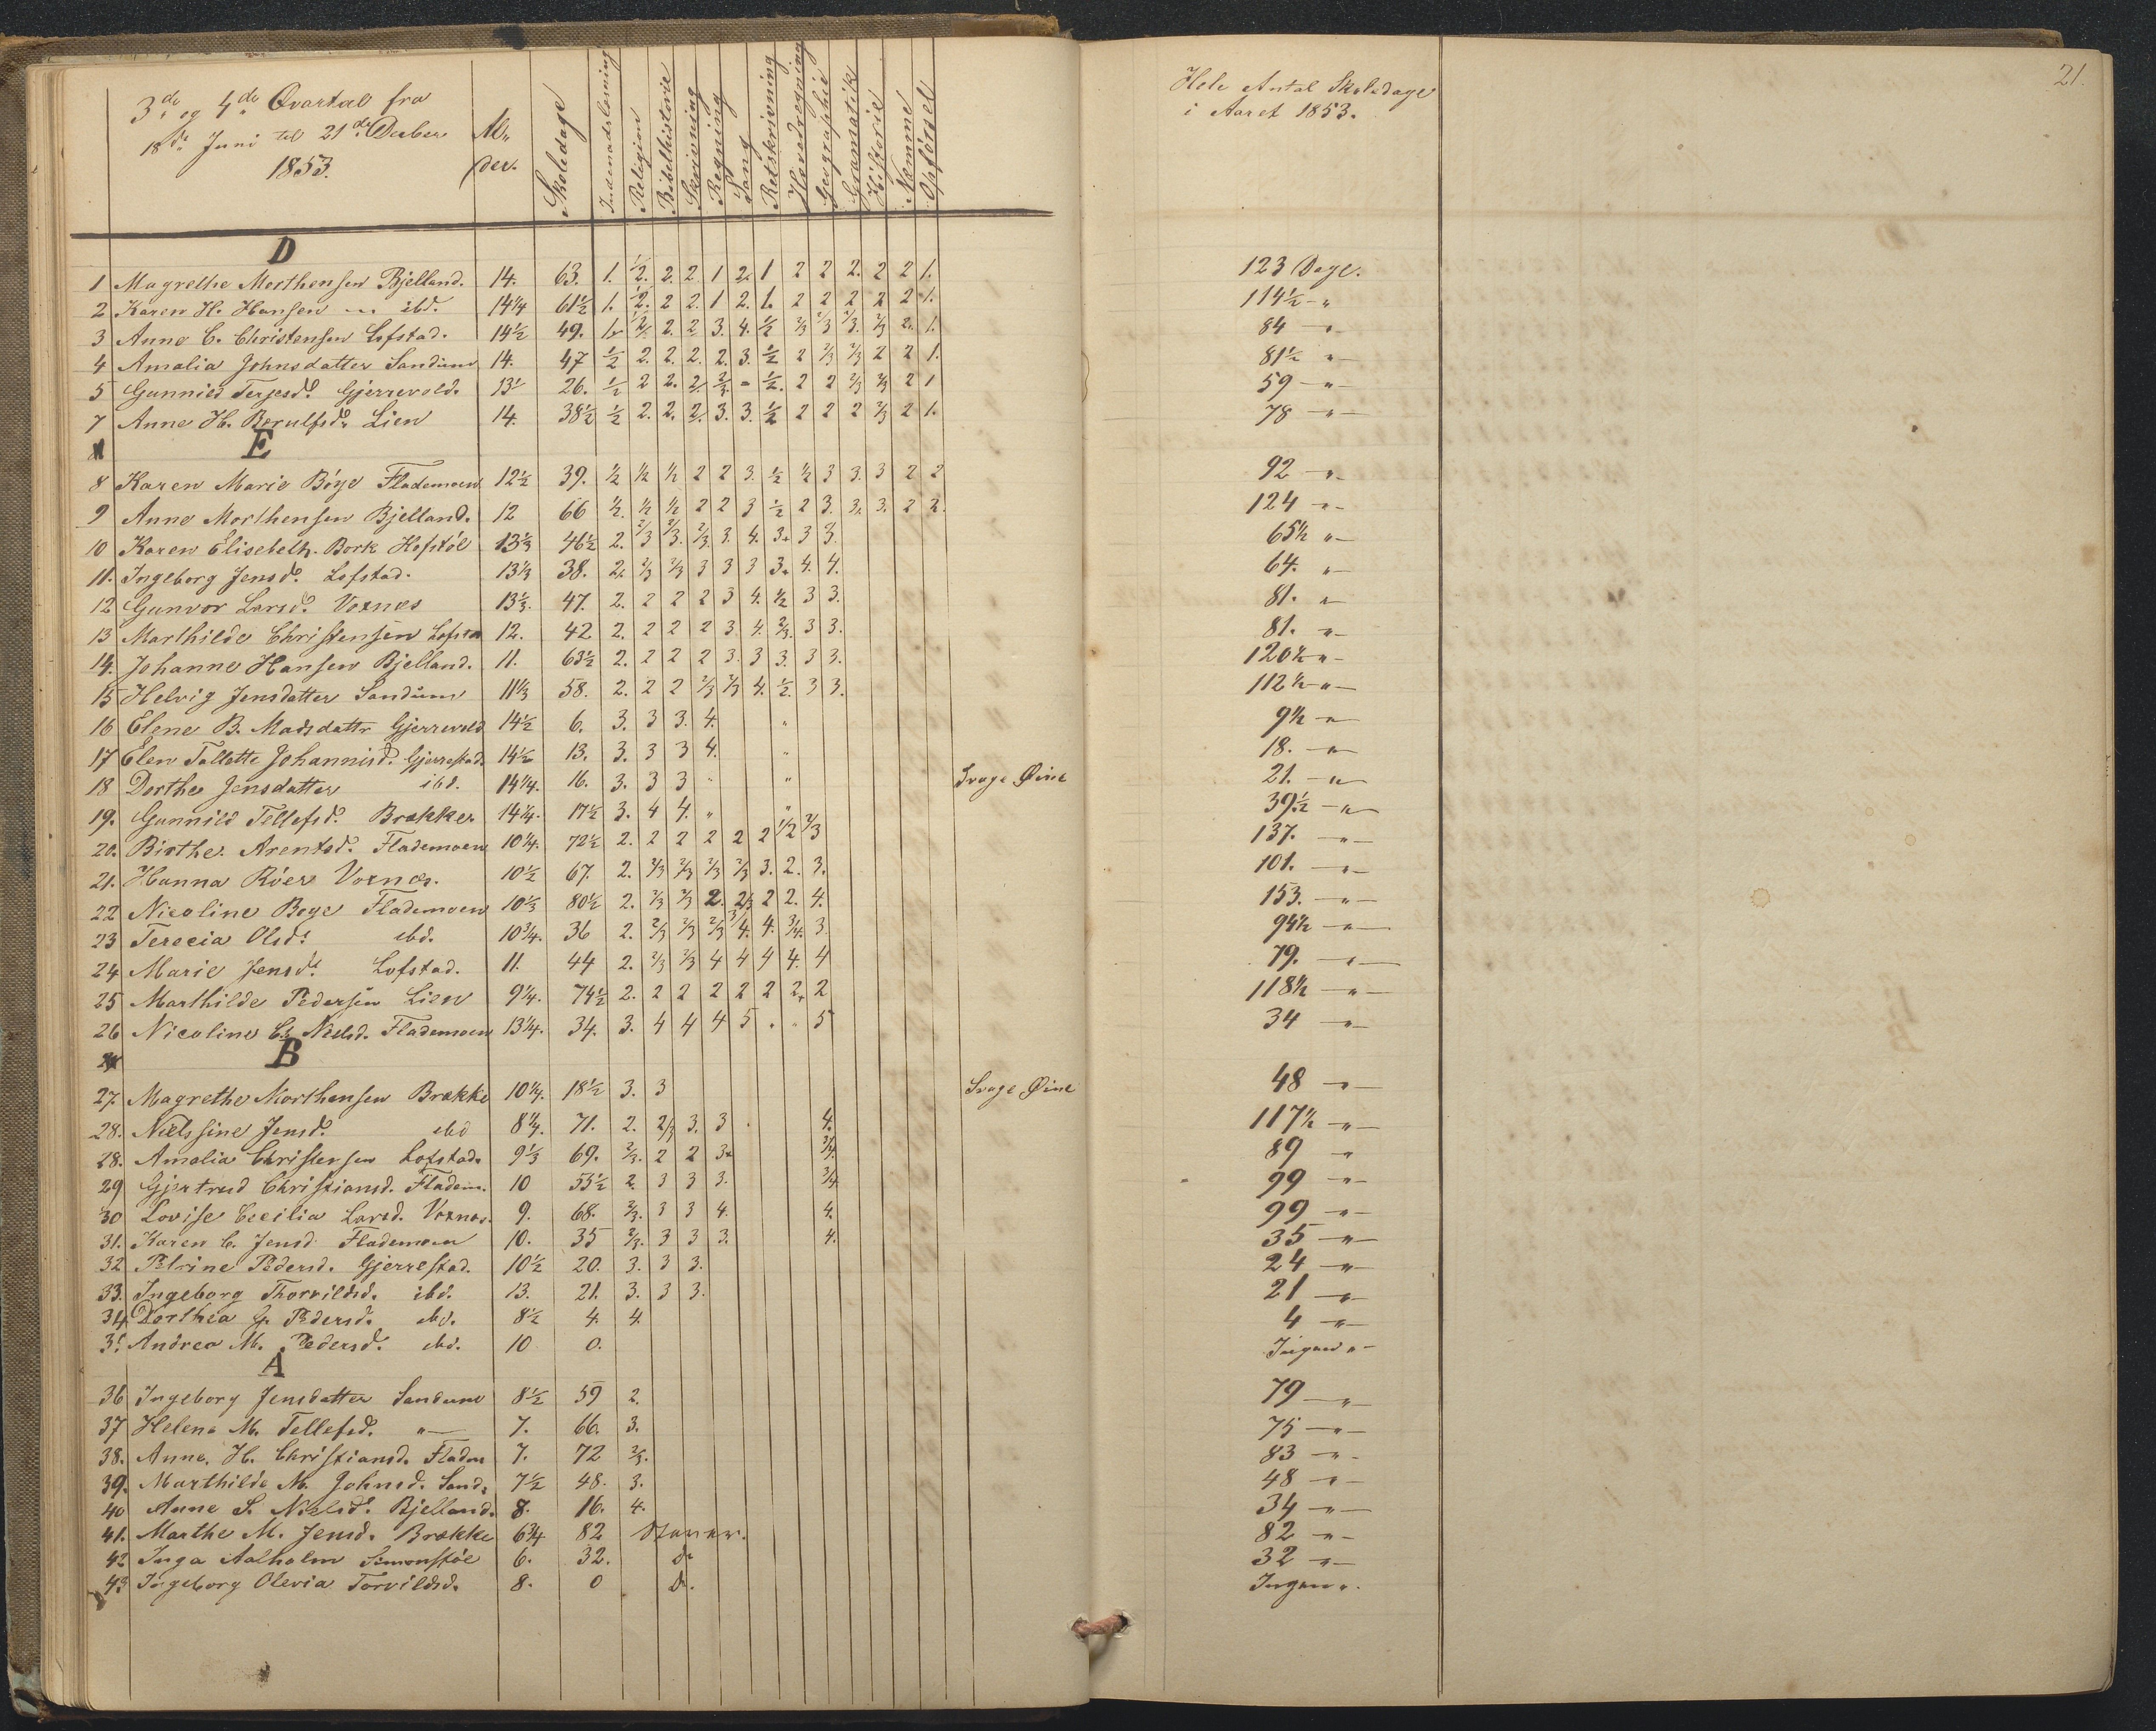 3de og 4de Qvartal fra
18de Juni til 21de Decber
1853.
Al-
der.
Skoledage
Indenadslæsning
Religion
Bibelhistorie
Skrivning
Regning
Sang
Retskrivning
Hovedregning
Geographie
Gramatik
Historie
Nemme
Opførsel
Hele Antal Skoledage
i Aaret 1853.
21.
D
1 Magrethe Morthensen Bjelland. 14. 63. 1. 1/2. 2. 2 1 2. 1 2 2 2. 2 2 1. 123 Dage.
2 Karen H. Hansen ibd. 14 1/4 61 1/2 1. 1/2. 2 2. 1 2. 1. 2 2 2 2 2 1. 114 1/2 - "
3 Anne C. Christensen Lofstad. 14 1/2 49. 1. 1/2. 2. 2 3. 4. 1/2 2/3 2/3 2/3. 2/3 2. 1. 84 - "
4 Amalia Johnsdatter Sandum 14. 47 1/2 2. 2. 2. 2. 3. 1/2 2 2/3 2/3 2 2 1. 81 1/2 "
5 Gunnild Terjesd. Gjerrevold. 13 26. 1/2 2 2. 2. 2/3 - 1/2. 2 2 2/3 2/3 2 1 59 - "
7 Anne H. Berulfsd. Lien 14. 38 1/2 1/2 2. 2. 2. 3. 3. 1/2 2 2 2 2/3 2 1. 78 - "
E
8 Karen Marie Böye Flademoen 12 1/2 39. 1/2 1/2 1/2 2 2 3. 1/2 1/2 3 3. 3 2 2 92 - "
9 Anne Morthensen Bjelland. 12 66 1/2. 1/2 1/2 2 2 3 1/2 2 3. 3. 3. 2 2. 124 - "
10 Karen Elisebeth Bork Hofstöl 13 1/3 46 1/2 2. 2/3 2/3. 2/3. 3. 4. 3. 3 3. 65 1/2 "
11. Ingeborg Jensd. Lofstad. 13 1/3 38. 2. 2/3 2/3 3 3 3 3. 4. 4. 64. "
12 Gunvor Larsd. Voxnæs 13 1/3. 47. 2. 2 2 2 3 4. 1/2 3 3. 81. "
13 Marthilde Christensen Lofsta 12. 42 2. 2 2 2 3. 4. 2/3. 3 3. 81. "
14. Johanne Hansen Bjelland. 11. 63 1/2 2. 2 2 2 3. 3 3. 3 3. 120 1/2 "
15 Helvig Jensdatter Sandum 11 1/3 58. 2. 2 2 2/3 2/3 4. 1/2. 3 3. 112 1/2 "
16 Elene B. Madsdattr Gjerrevold 14 1/2 6. 3. 3 3. 4. " 9 1/2 "
17 Elen Tallette Johannisd. Gjerrestad. 14 1/2 13. 3. 3 3 4. " 18. - "
18 Dorthe Jensdatter ibd. 14 1/4. 16. 3. 3 3 " " Svage Øine 21. - "
19. Gunnild Tellefsd. Brække 14 1/4. 17 1/2 3. 4 4. " " 39 1/2 - "
20. Birthe Arentsd. Flademoen 10 1/4. 72 1/2 2. 2 2 2 2 2 1/2 2/3 137. - "
21. Hanna Röer Voxnæs. 10 1/2 67. 2. 2/3 2/3 2/3 2/3 3. 2. 3. 101. - "
22 Nicoline Boye Flademoen 10 1/3 80 1/2 2. 2/3 2/3 2. 2/3 2 2. 4. 153. - "
23 Terecia Olsd. ibd. 10 3/4. 36 2. 2/3 2/3 2/3 3/4. 4. 3/4. 3. 94 1/2 - "
24 Marie Jensd. Lofstad. 11. 44 2. 2/3 2/3 4 4 4 4. 4 79. - "
25 Marthilde Pedersen Lien 9 1/4. 74 1/2 2. 2 2 2 2 2 2. 2 118 1/2 - "
26 Nicoline C. Nielsd. Flademoen 13 1/4. 34. 3. 4 4 4 5 . . 5 34 - "
B
27. Magrethe Morthensen Brække 10 1/4. 18 1/2 3. 3 Svage Øine 48 - "
28. Nielssine Jensd. ibd 8 1/4. 71. 2. 2/3 3. 3 . 4. 117 1/2 - "
28. Amalia Christensen Lofstad. 9 1/3 69. 2/3. 2 2 3. 3/4. 89 "
29 Gjertrud Christiansd. Fladem. 10 53 1/2 2. 3 3 3. 3/4 99 - "
30 Lovise Cecilia Larsd. Voxnæs. 9. 68. 2/3. 3 3 4. 4. 99 - "
31. Karen C. Jensd. Flademoen 10. 35 2/3. 3 3 3. 4. 35 - "
32 Petrine Pedersd. Gjerrestad. 10 1/2 20. 3. 3 3. 24 - "
33. Ingeborg Thorvildsd. ibd. 13. 21. 3. 3 3. 21 - "
34 Dorthea G. Pedersd. ibd. 8 1/2 4. 4. 4 - "
35 Andrea M. Pedersd. ibd. 10 0. Ingen " -
A
36 Ingeborg Jensdatter Sandum 8 1/2 59 2. 79 - "
37 Helene M. Tellefsd. " 7. 66. 3. 75 - "
38. Anne. H. Christiansd. Fladm 7. 72 2/3. 83 - "
39. Marthilde M. Johnsd. Sand. 7 1/2 48. 3. 48 - "
40 Anne S. Nielsd. Bjelland. 8. 16. 4. 34 - "
41. Marthe M. Jensd. Brække 6 3/4 82 Staver. 82 - "
42 Inga Aalholm Simonstöl 6. 32. do 32 - "
43 Ingeborg Olevia Torvildsd. 8. 0 do. Ingen ".